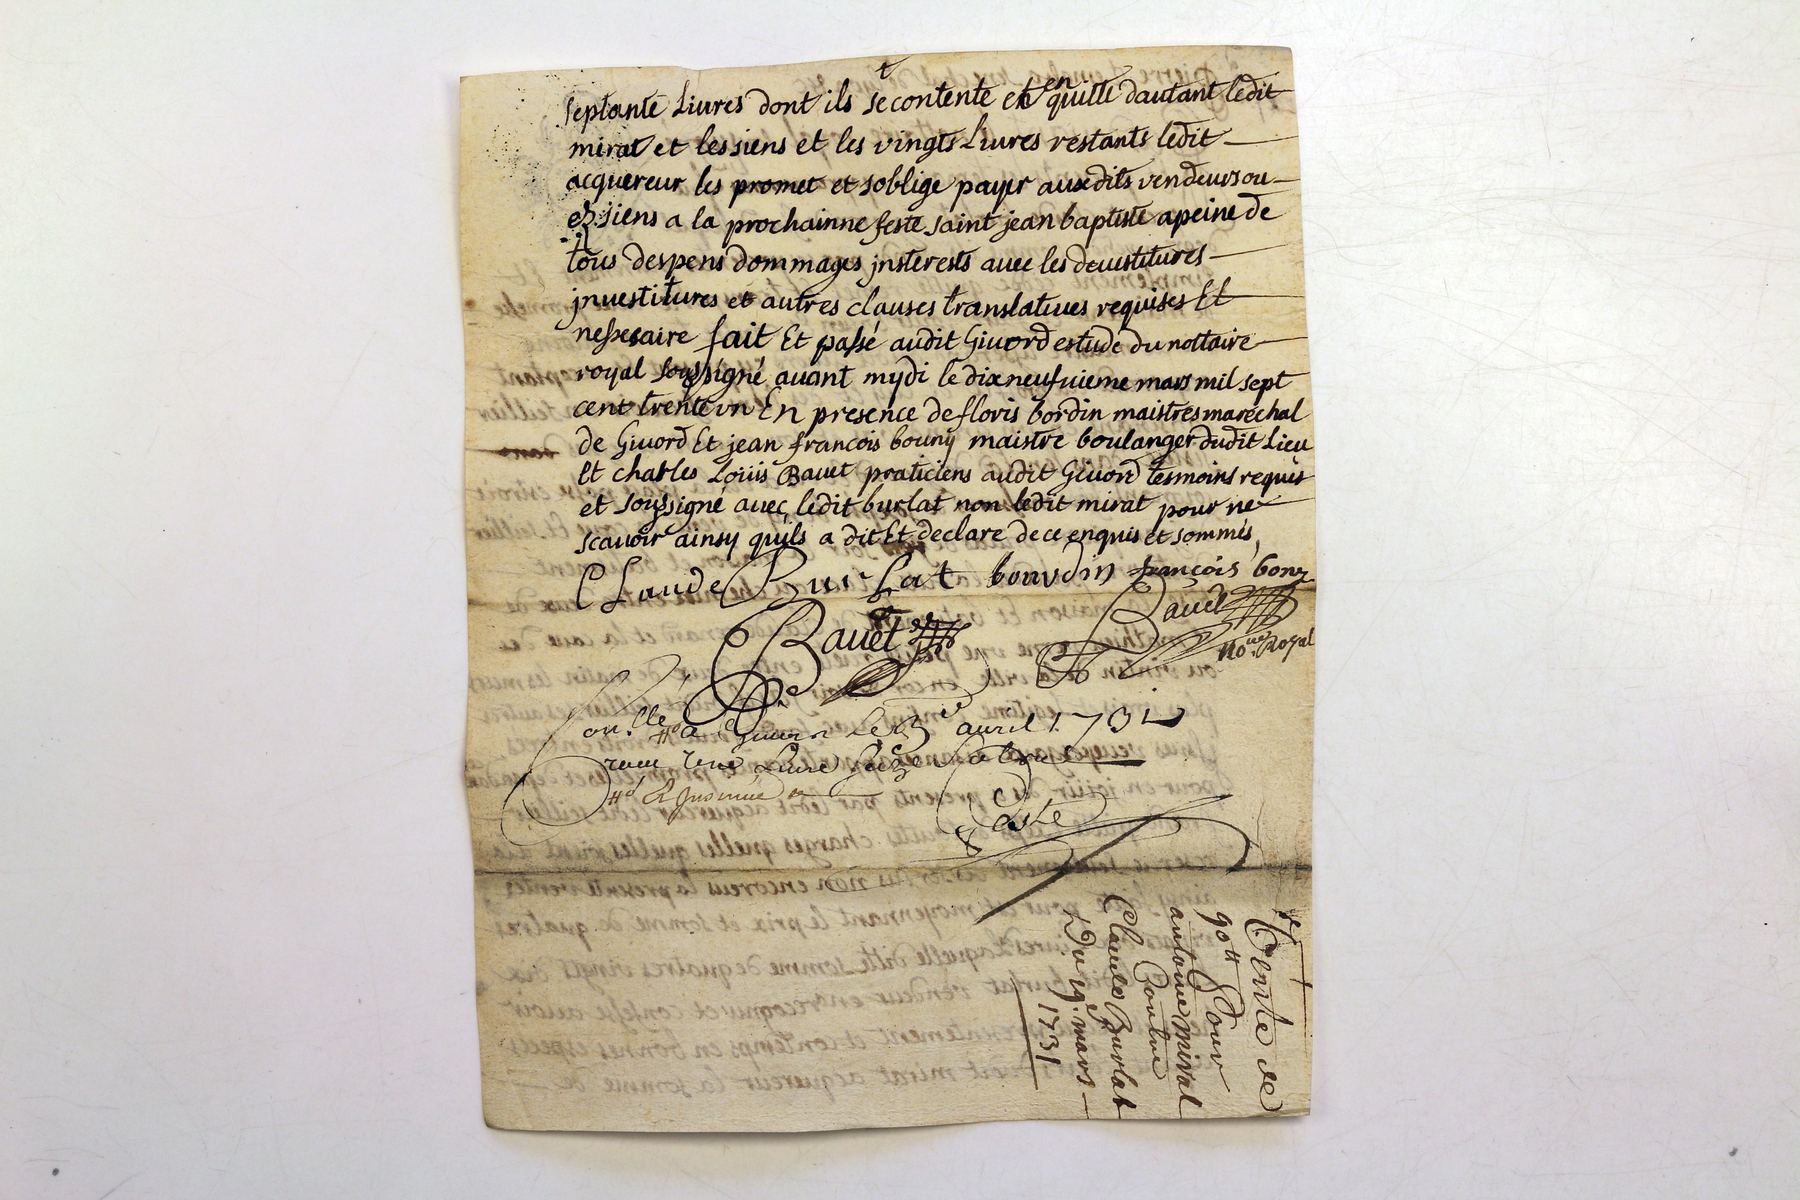 septante Livres dont ils se contente et en quitte dautant ledit
mirat et les siens et les vingts Livres restants ledit
acquereur les promet et soblige payer auxdits vendeurs ou
es siens a la prochainne feste saint jean baptiste apeine de
tous despens dommages jnsterests avec les devestitures
jnvestitures et autres clauses translatives requises Et
nessesaire fait Et passé audit Givord estude du nottaire
royal soussigné avant mydi le dix neufvieme mars mil sept
cent trente vn En presence de floris bordin maistres maréchal
de Givord Et jean françois bouny maistre boulanger dudit Lieu
Et charles Loüis Bavet praticiens audit Givord tesmoins requis
et soussigné avec ledit burlat non ledit mirat pour ne
scavoir ainsy quils a dit Et declare de ce enquis et sommés
Claude Burlat bourdin françois bony
Bavet Bavet
No.re Royal
Con.llé a Givord le avril 1731
Coste
Vente de
90 tt Pour
antoine mirat
Contre
Claude Burlat
Du 19.e mars
1731